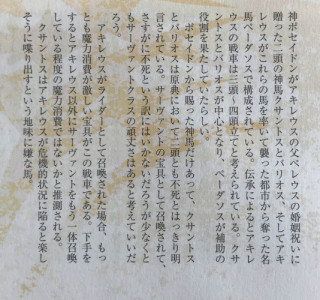 神ポセイドンがアキレウスの父ペレウスの婚姻祝いに
贈った二頭の神馬クサントスとバリオス、そしてアキ
レウスがこれらの馬を率いて襲った都市から奪った名
馬ペーダソスで構成されている。伝承によるとアキレ
ウスの戦車は三頭〜四頭立てと考えられている。クサ
ントスとバリオスが中心となり、ペーダソスが補助の
役割を果たしていたらしい。
ポセイドンから賜った神馬だけあって、クサントス
とバリオスは原典において二頭とも不死とはっきり明
言されている。サーヴァントの宝具として召喚されて、
さすがに不死という訳にはいかないだろうが少なくと
もサーヴァントクラスの頑丈さはあると考えていいだ
ろう。
アキレウスがライダーとして召喚された場合、もっ
とも魔力消費が激しい宝具がこの戦車である。下手を
するとアキレウス以外にサーヴァントをもう一体召喚
している程度の魔力消費ではないかと推測される。
クサントスはアキレウスが危機的状況に陥ると楽し
そうに喋り出すという地味に嫌な馬。